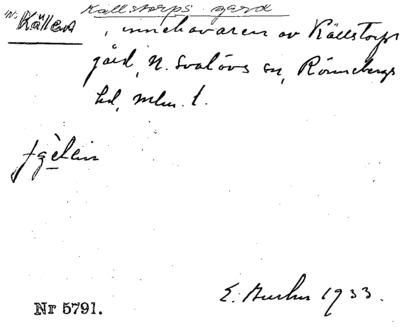 Källstorps gård
n. Källen
, innehavaren av Källstorps
gård, N. Svalövs sn, Rönnebergs
hd, mlm. l.
Nr 5791.
E. 1933.